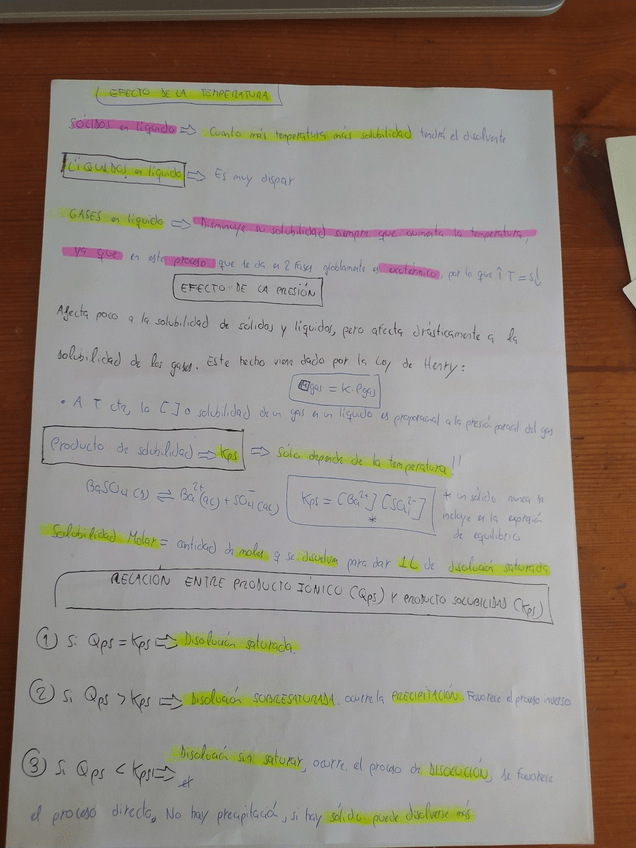 EFECTO DE LA TEMPERATURA
SÓLIDOS en líquido ⇒ Cuanto más temperatura más solubilidad tendrá el disolvente
LÍQUIDOS en líquido ⇒ Es muy dispar
GASES en líquido ⇒ Disminuye su solubilidad siempre que aumenta la temperatura,
ya que en este proceso que se da en 2 fases globalmente es exotérmico, por lo que ↑T = s↓
EFECTO DE LA PRESIÓN
Afecta poco a la solubilidad de sólidos y líquidos, pero afecta drásticamente a la
solubilidad de los gases. Este hecho viene dado por la Ley de Henry:
gas = K · Pgas
• A T cte, la [ ] o solubilidad de un gas en un líquido es proporcional a la presión parcial del gas
Producto de solubilidad ⇒ Kps ⇒ Sólo depende de la temperatura!!
BaSO4(s) ⇌ Ba2+(ac) + SO4-(ac) Kps = [Ba2+] [SO42-] * un sólido nunca se
*
incluye en la expresión
de equilibrio
Solubilidad Molar = cantidad de moles q se disuelven para dar 1L de disolución saturada
RELACIÓN ENTRE PRODUCTO IÓNICO (Qps) Y PRODUCTO SOLUBILIDAD (Kps)
① Si Qps = Kps ⇒ Disolución saturada.
② Si Qps > Kps ⇒ Disolución SOBRESATURADA. ocurre la PRECIPITACIÓN. Favorece el proceso inverso
③ Si Qps < Kps ⇒ Disolución sin saturar, ocurre el proceso de DISOLUCIÓN, se favorece
el proceso directo. No hay precipitación, si hay sólido puede disolverse más